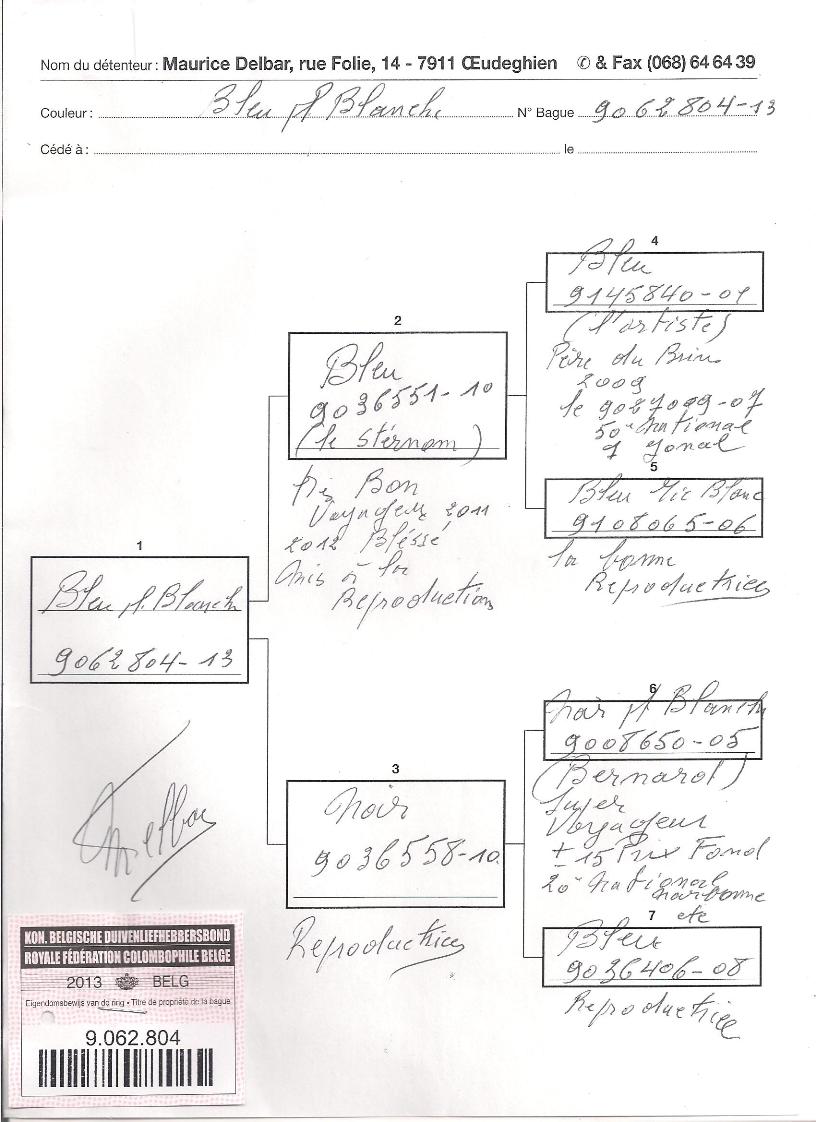 Nom du détenteur : Maurice Delbar, rue Folie, 14 - 7911 Œudeghien ✆ & Fax (068) 64 64 39
Couleur : Bleu pl Blanche N° Bague 9062804-13
Cédé à : le
4
Bleu
9145840-01
(l'artiste)
Père du Brin
2009
le 9027099-07
50e National
9 Zonal
2
Bleu
9036551-10
(le stérnom)
très Bon
Voyageur 2011
2012 Bléssé
mis à la
Reproduction
5
Bleu tic Blanc
9108065-06
la bonne
Reproductrice
1
Bleu pl. Blanch
9062804-13
6
Noir pl Blanche
9008650-05
(Bernard)
Super
Voyageur
± 15 Prix Fond
20e National
narbonne
etc
3
Noir
9036558-10
Reproductrice
7
Bleu
9036406-08
Reproductrice
MDelbar
KON. BELGISCHE DUIVENLIEFHEBBERSBOND
ROYALE FÉDÉRATION COLOMBOPHILE BELGE
2013 BELG
Eigendomsbewijs van de ring • Titre de propriété de la bague
9.062.804